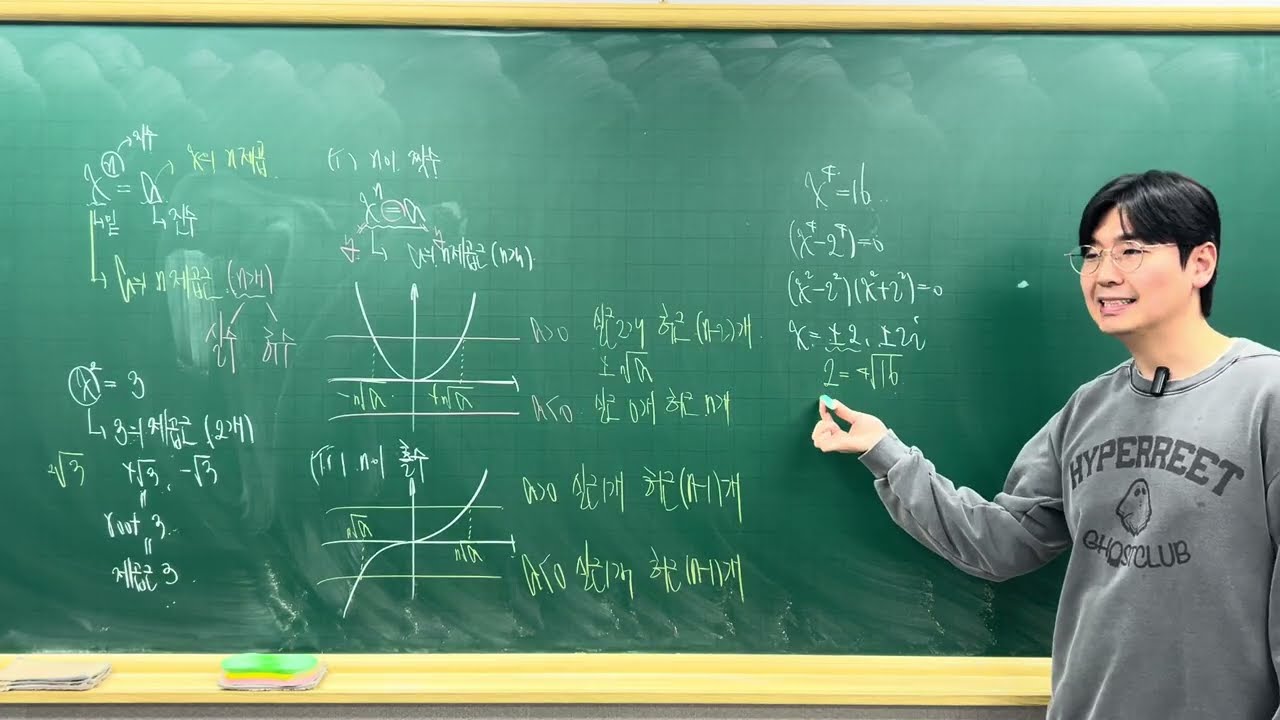 지수
xⁿ = a → x의 n제곱
↳ 밑 ↳ 진수
↳ a의 n제곱근 (n개)
실수 허수
x² = 3
↳ 3의 제곱근 (2개)
²√3 +√3, -√3
"
root 3
"
제곱근 3
(i) n이 짝수
xⁿ = a
↳ a의 n제곱근 (n개)
-ⁿ√a +ⁿ√a
a>0 실근 2개 허근 (n-2)개
± ⁿ√a
a<0 실근 0개 허근 n개
(ii) n이 홀수
ⁿ√a
ⁿ√a
a>0 실근 1개 허근 (n-1)개
a<0 실근 1개 허근 (n-1)개
x⁴ = 16
(x⁴-2⁴) = 0
(x²-2²)(x²+2²) = 0
x = ±2, ±2i
2 = ⁴√16
HYPERREET
GHOST CLUB